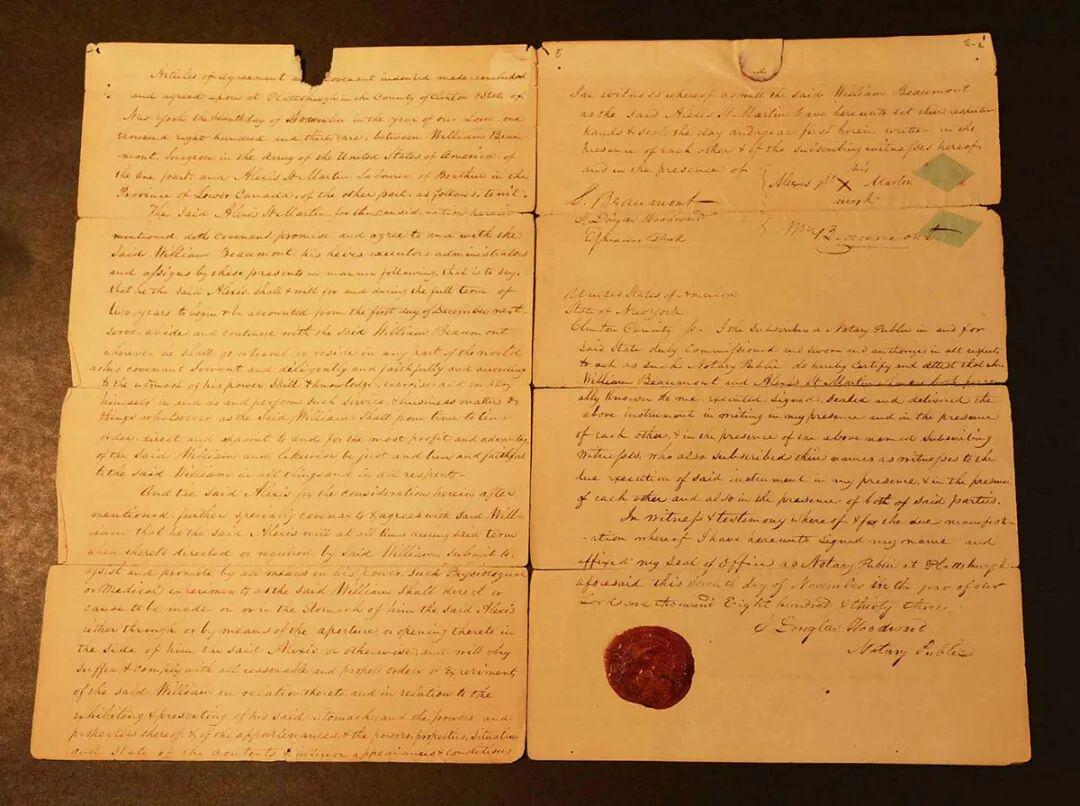 Articles of agreement and Covenant indented made concluded
and agreed upon at Plattsburgh in the County of Clinton & State of
New York the day of November in the year of our Lord one
thousand right hundred and thirty between William Beau
mont, Surgeon in the Army of the United States of America, of
the one part, and Alexis St Martin Labourer of Berthier in the
Province of Lower Canada, of the other part, as follows, to wit.
The Said Alexis St Martin for the consideration herein
mentioned doth covenant, promise and agree to and with the
Said William Beaumont, his heirs executors administrators
and assigns by these presents in manner following, that is to say,
that he the said Alexis, shall & will for and during the full term of
two years to begin & be accounted from the first day of December next
serve abide, and continue with the said William Beaumont
wherever he shall go or travel or reside in any part of the world
as his covenant Servant and diligently and faithfully and according
to the utmost of his power Skill & knowledge, exercise and employ
himself in and do and perform such service & business matter &
things whatsoever as the Said William Shall from time to time
order, direct and appoint to and for the most profit and advantage
of the Said William and likewise be just and true and faithful
to the said William in all things and in all respects
And the said Alexis for the consideration herein after
mentioned further specially covenants & agrees with said Will-
iam that he the said Alexis will at all times during said term
when thereto directed or required by said William, submit to,
assist and promote by all means in his power, such Physiological
or Medical experiments as the said William shall direct or
cause to be made on or in the Stomach of him the said Alexis
either through or by means of the aperture or opening thereto in
the side of him the said Alexis or otherwise, and will obey
suffer & comply with all reasonable and proper orders or Experiments
of the said William in relation thereto and in relation to the
exhibiting & presenting of his said stomach and the powers and
properties thereof & of the appurtenances & the powers, properties, situation
and State of the contents & interior appearances & conditions
5
E-2
In witness whereof as well the said William Beaumont
as the said Alexis St Martin have hereunto set their respective
hands & seals the day and year first herein written in the
presence of each other & of the subscribing witnesses hereof
and in the presence of
his
Alexis St X Martin
mark
S. Beaumont
J Douglas Woodward
Ephraim
Wm Beaumont
United States of America
State of New York
Clinton County ss. I the Subscriber a Notary Public in and for
Said State duly Commissioned and sworn and authorized in all respects
to act as such Notary Public do hereby Certify and attest that the
William Beaumont and Alexis St Martin who are both person
ally known to me executed, Signed, sealed and delivered the
above instrument in writing in my presence and in the presence
of each other, & in the presence of the above named Subscribing
witnesses, who also subscribed their names as witnesses to the
due execution of said instrument in my presence & in the presence
of each other and also in the presence of both of said parties.
In witness & testimony whereof & for the due manifest-
ation whereof I have hereunto signed my name and
affixed my Seal of Office as Notary Public at Plattsburgh
aforesaid this Seventh day of November in the year of our
Lord one thousand Eight hundred & thirty three.
J Douglas Woodward
Notary Public